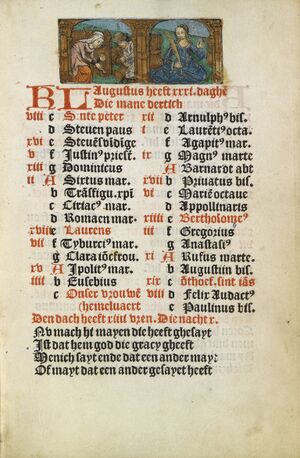 KL Augustus heeft xxxi. daghe
Die mane dertich
viii c Sinte peter
d Steuen paus
xvi e Steuēs vīdige
v f Justin' priest.
xiii g Dominicus
ii A Sixtus mar.
b Trāsfigu. xpi
c Ciriac' mar.
d Romaen mar.
xviii e Laurens
vii f Tyburci' mar.
g Clara iōcfrou
xv A Ipolit' mar.
iiii b Eusebius
c Onser vrouwē
hemeluaert
xii d Arnulph' bis.
i e Laurēti' octa.
f Agapit' mar.
ix g Magn' marte
A Barnardt abt
xvii b Priuatus bis.
vi c Mariē octaue
d Appollinaris
xiiii e Bertholome'
iii f Gregorius
g Anastasi'
xi A Rufus marte.
b Augustiin bis.
c ōthoef. sint iās
viii d Felix Audact'
e Paulinus bis.
Den dach heeft xiiii vren. Die nacht x.
Nv mach ht mayen die heeft ghesayt
Ist dat hem god die gracy gheeft
Menich sayt ende dat een ander mayt
Of mayt dat een ander gesayet heeft